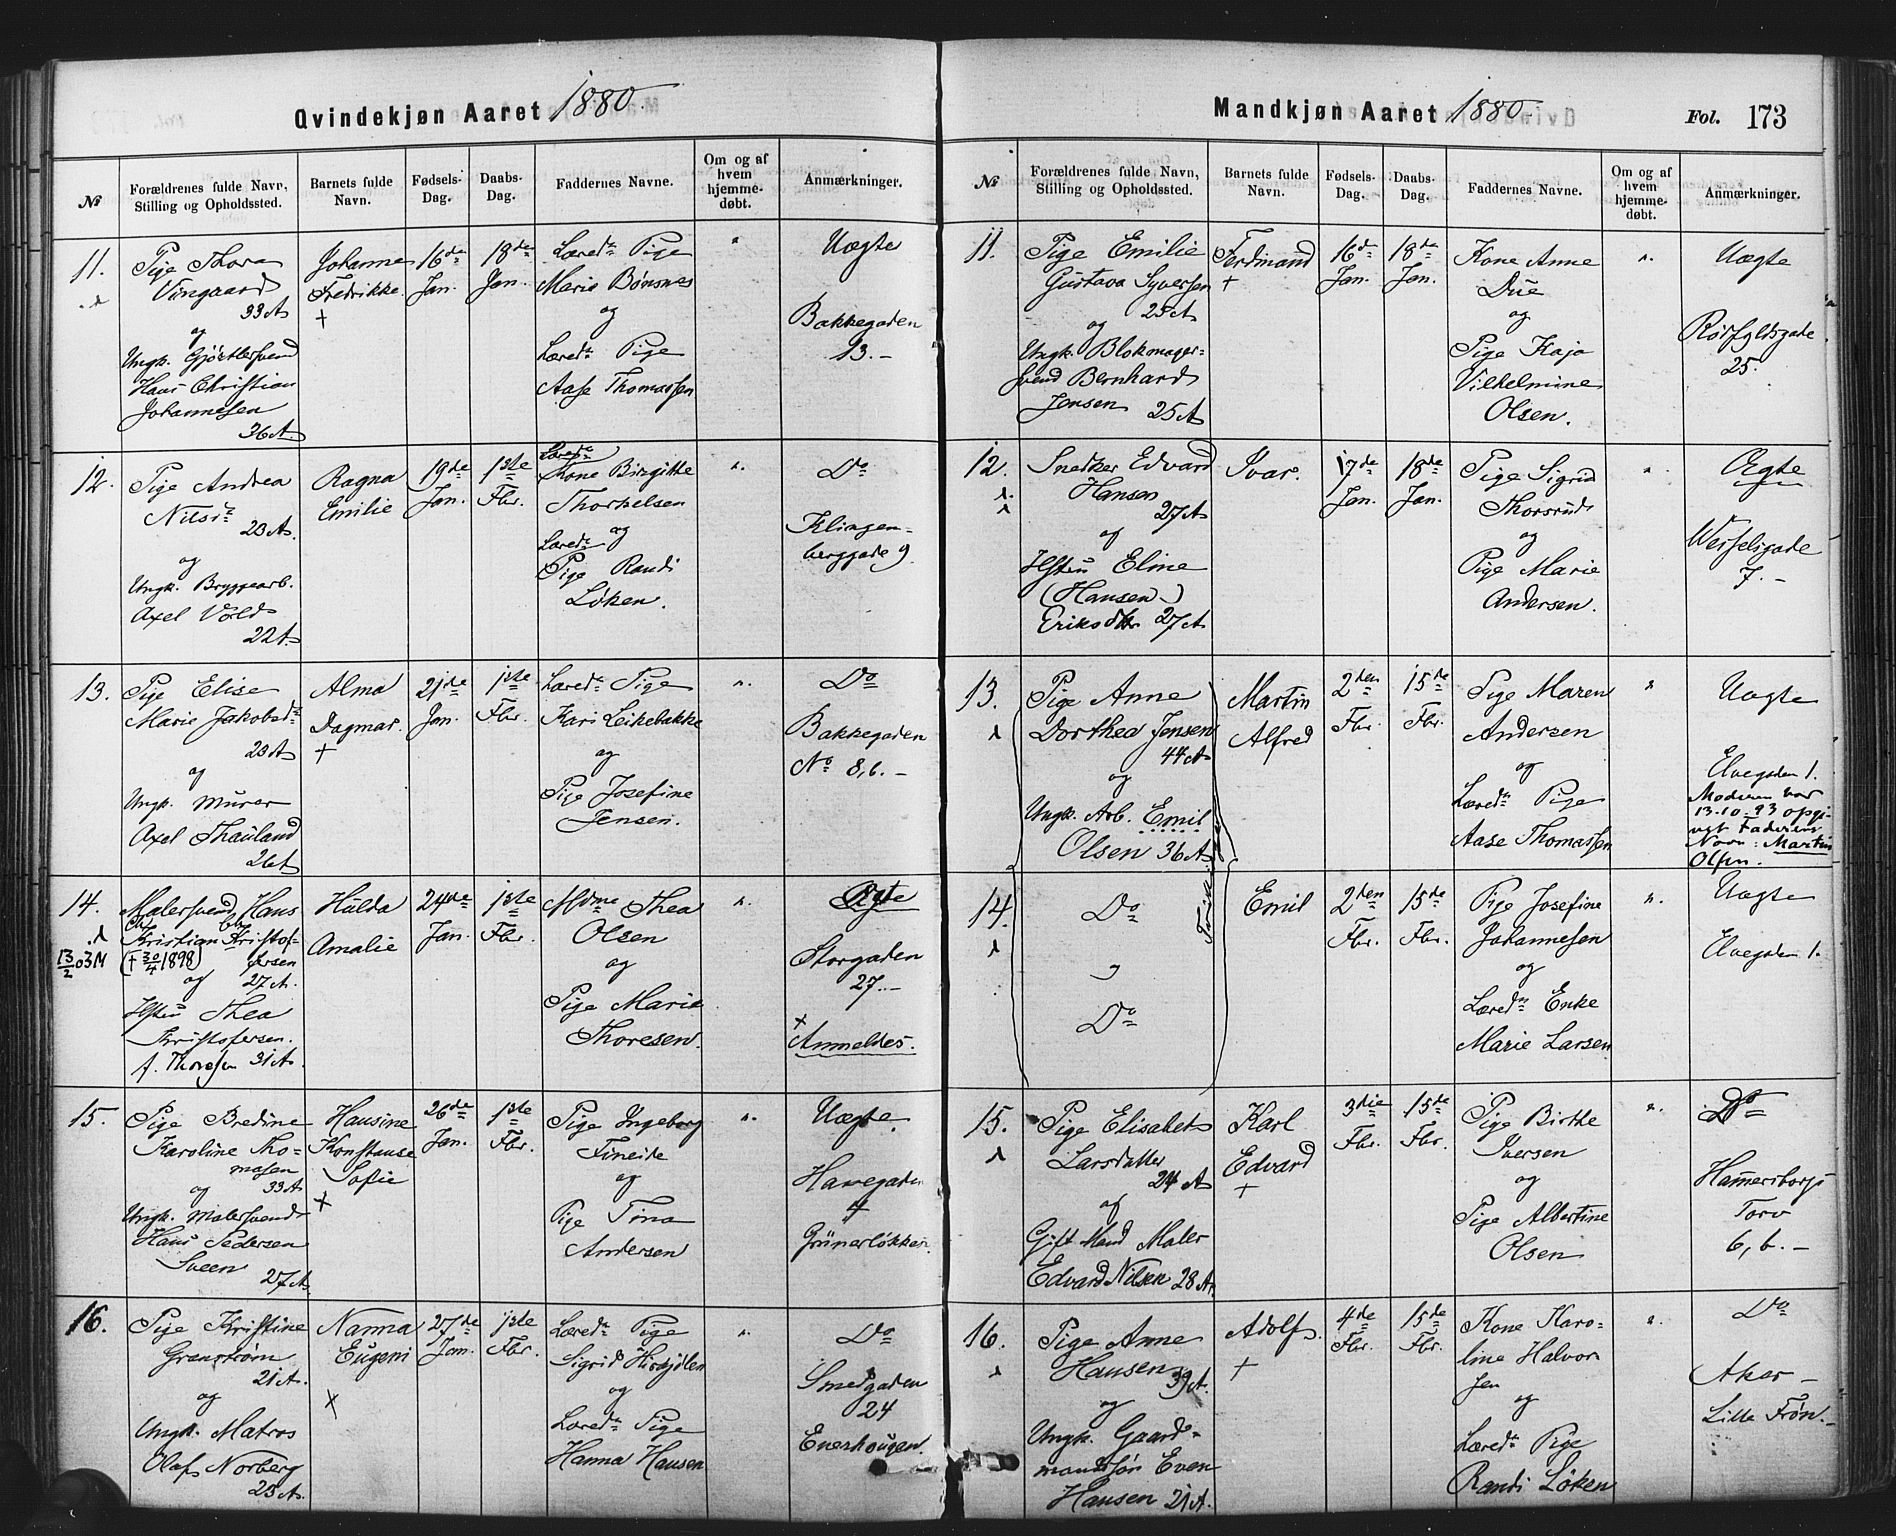 Qvindekjøn Aaret 1880.
№
Forældrenes fulde Navn, Stilling og Opholdssted.
Barnets fulde Navn.
Fødsels-Dag.
Daabs-Dag.
Faddernes Navne.
Om og af hvem hjemme-døbt.
Anmærkninger.
11.
Pige Thora
Vingaard
33 A
og
Ungk. Gjørtlersvend
Hans Christian
Johannesen
36 A.
Johanne
Fredrikke
+
16de
Jan.
18de
Jan.
Læred. Pige
Marie Bønsnes
og
Læred. Pige
Aase Thomassen
"
Uægte
Bakkegaden
13.-
12.
Pige Andrea
Nilsd.
23 A.
og
Ungk. Bryggearb.
Axel Vold
22 A.
Ragna
Emilie
19de
Jan.
1ste
Fbr.
Læred.
Kone Birgitte
Thorkelsen
og
Læred.
Pige Randi
Løken.
"
Do
Klingen-
berggade 9.
13.
Pige Elise
Marie Jakobsd.
23 A
og
Ungk. Murer
Axel Thauland
26 A
Alma
Dagmar.
+
21de
Jan.
1ste
Fbr.
Læred. Pige
Kari Leikebakke
og
Pige Josefine
Jensen.
"
Do
Bakkegaden
No 8, b. -
14.
13/2 03 M
Malersvend Hans
Kristian Kristof-
fersen
(+ 30/4 1898)
og 27 A.
Hstru Thea
Kristofersen.
f. Thoresen 31 A.
Hulda
Amalie
24de
Jan.
1ste
Fbr.
Mdme Thea
Olsen
og
Pige Marie
Thoresen.
"
Ægte
Storgaden
27.-
+
Anmeldes.
15.
Pige Bredine
Karoline Tho-
masen
33 A
og
Ungk. Malersvend
Hans Pedersen
Sveen
27 A.
Hansine
Konstanse
Sofie
+
26de
Jan.
1ste
Fbr.
Pige Ingeborg
Fineide
og
Pige Tina
Andersen
"
Uægte.
Havegaden
4
Grünerløkken.
16.
Pige Kristine
Granstrøm
21 A.
og
Ungk. Matros
Olaf Norberg
25 A.
Nanna
Eugeni
+
27de
Jan.
1ste
Fbr.
Læred. Pige
Sigrid
og
Læred. Pige
Hanna Hansen
"
Do
Smedgaden
24
Enerhougen.
Mandkjøn Aaret 1880
Fol. 173
№
Forældrenes fulde Navn, Stilling og Opholdssted.
Barnets fulde Navn.
Fødsels-Dag.
Daabs-Dag.
Faddernes Navne.
Om og af hvem hjemme-døbt.
Anmærkninger.
11.
Pige Emilie
Gustava Syversen
25 A
og
Ungk. Blokmager-
svend Bernhard
Jensen 25 A
Ferdinand
+
16d
Jan.
18de
Jan.
Kone Anne
Due
og
Pige Kaja
Vilhelmine
Olsen.
"
Uægte
25.
12.
Snedker Edvard
Hansen
27 A
og
Hstru Eline
(Hansen)
Eriksdtr 27 A
Ivar.
17de
Jan.
18de
Jan.
Pige Sigrid
Thorsrud
og
Pige Marie
Andersen.
"
Ægte
Wesselsgade
7.-
13.
Pige Anne
Dorthea Jensen
44 A
og
Ungk. Arb. Emil
Olsen 36 A.
Martin
Alfred
2den
Fbr.
15de
Fbr.
Pige Maren
Andersen
og
Læred. Pige
Aase Thomassen
"
Uægte
Elvegaden 1.
Moderen har
13.10.93 opgi-
vet Faderens
Navn: Martin
Olsen.
14.
Do
og
Do
Emil
2den
Fbr.
15de
Fbr.
Pige Josefine
Johannesen
og
Læred. Enke
Marie Larsen
"
Uægte
Elvegaden 1.
15.
Pige Elisabet
Larsdatter
24 A
og
Gift Mand Maler
Edvard Nilsen 28 A.
Karl
Edvard
+
3die
Fbr.
15de
Fbr.
Pige Birthe
Iversen
og
Pige Albertine
Olsen
"
Do
Hamersborg-
Torv
6, b. -
16.
Pige Anne
Hansen
39 A.
og
Ungk. Gaard-
mandssøn Even
Hansen 21 A.
Adolf.
+
4de
Fbr.
15de
Fbr.
Kone Karo-
line Halvor-
sen
og
Læred. Pige
Randi Løken
"
Do
Aker -
Lille Frøn.-